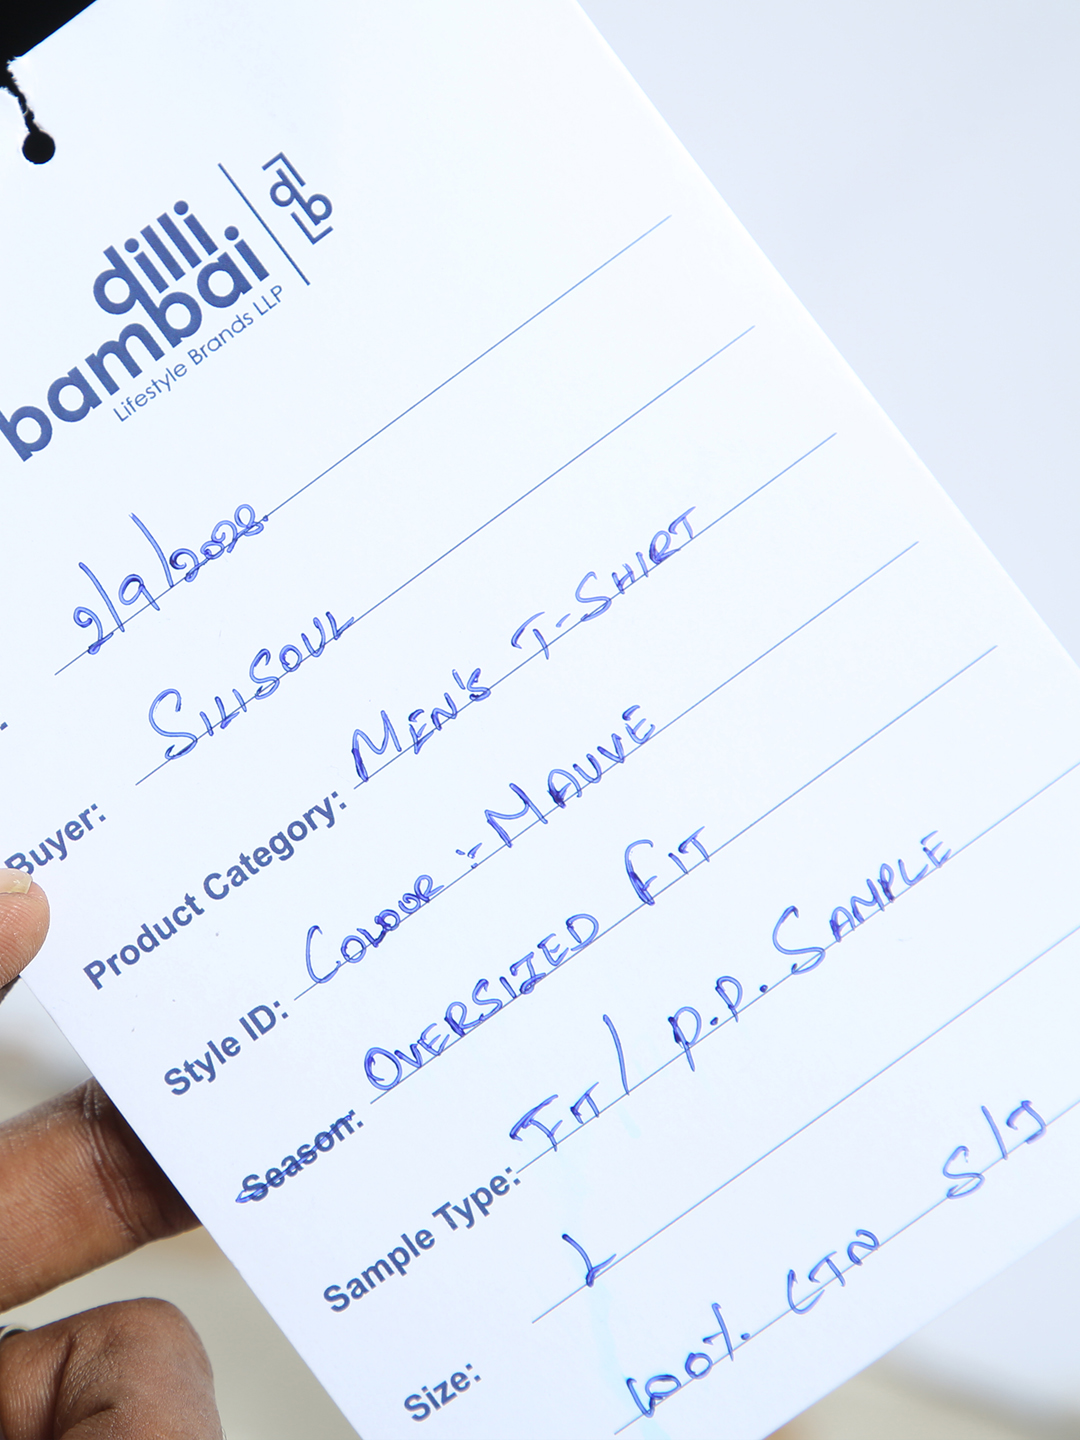 dilli
bambai
db
Lifestyle Brands LLP
2/9/2028
Buyer: SILISOUL
Product Category: MEN'S T-SHIRT
Style ID: COLOUR :- MAUVE
Season: OVERSIZED FIT
Sample Type: FIT / P.P. SAMPLE
Size: L
100% CTN S/J